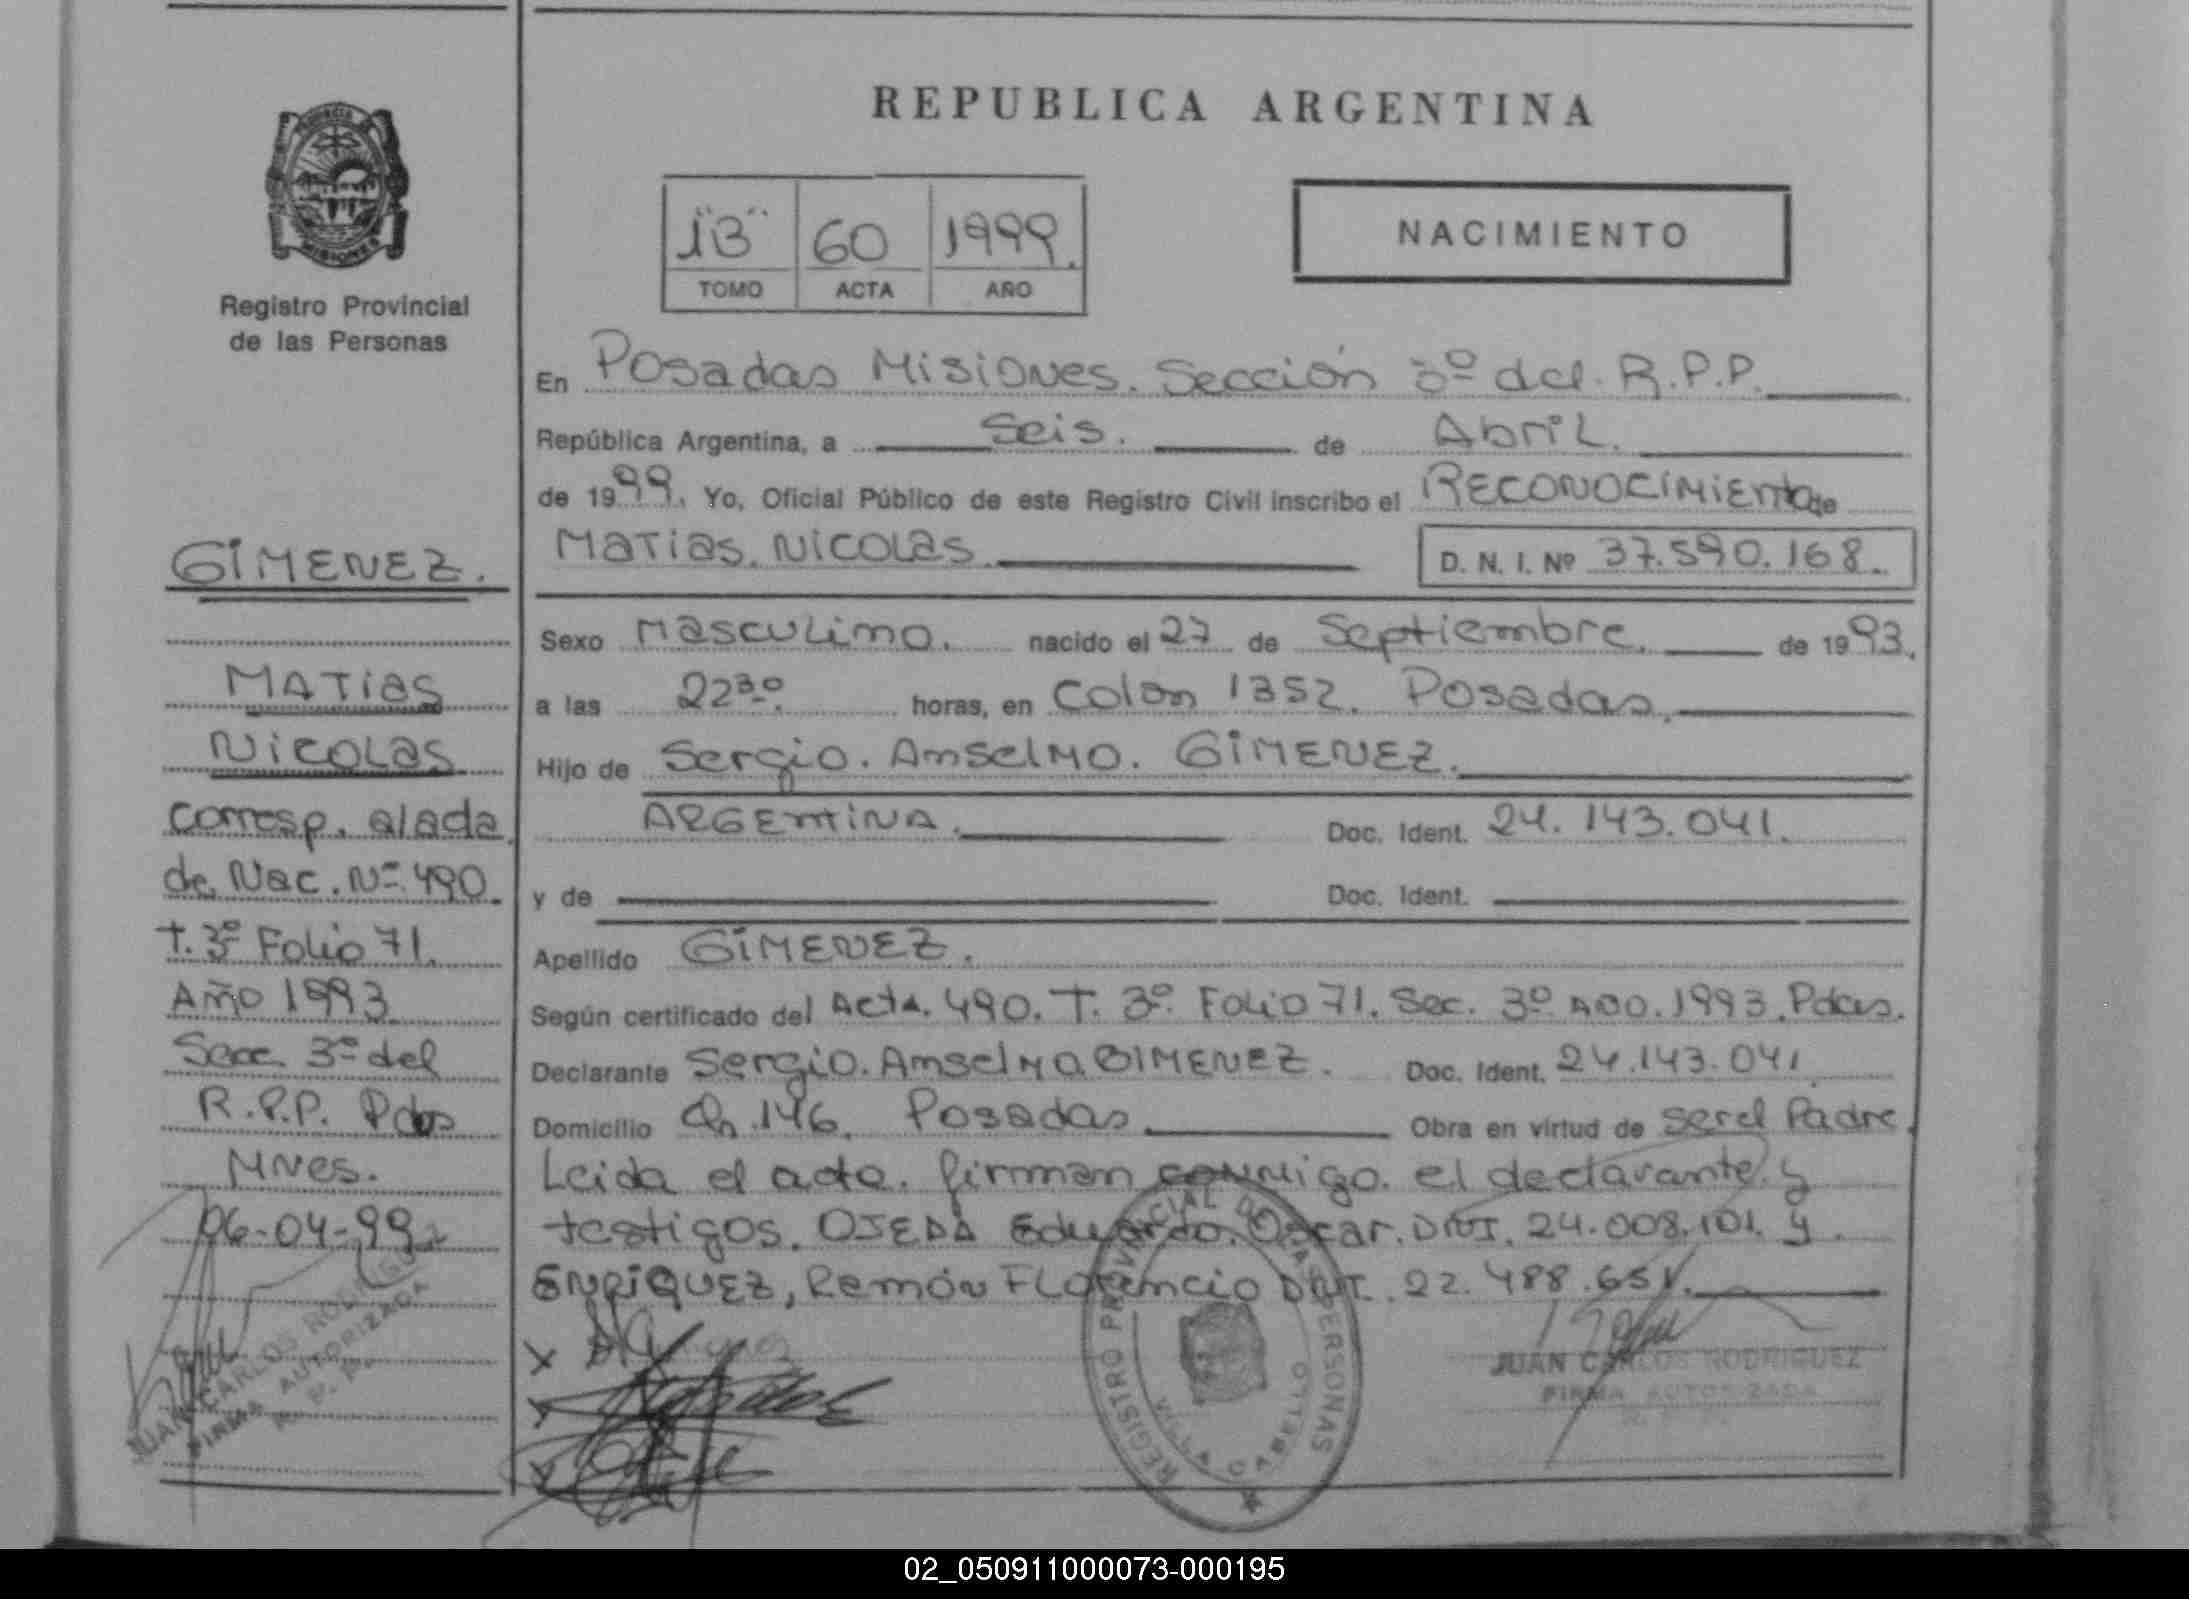 REPUBLICA ARGENTINA
PROVINCIA DE
MISIONES
Registro Provincial
de las Personas
1"B" 60 1999.
TOMO ACTA AÑO
NACIMIENTO
En Posadas Misiones. Sección 3º del. R.P.P.
República Argentina, a Seis. de Abril.
de 1999. Yo, Oficial Público de este Registro Civil inscribo el RECONOCIMIENTO de
MATIAS. NICOLAS. D. N. I. Nº 37.590.168.
Sexo Masculino. nacido el 27 de Septiembre. de 1993.
a las 22³⁰. horas, en Colon 1352. Posadas.
Hijo de Sergio. Anselmo. GIMENEZ.
ARGENTINA. Doc. Ident. 24.143.041.
y de Doc. Ident.
Apellido GIMENEZ.
Según certificado del Acta. 490. T. 3º. Folio 71. Sec. 3º Año. 1993. Pdas.
Declarante Sergio. Anselmo. GIMENEZ. Doc. Ident. 24.143.041.
Domicilio Ch. 146. Posadas. Obra en virtud de ser el Padre.
Leida el acta. firman conmigo. el declarante. y
testigos. OJEDA Eduardo. Oscar. DNI. 24.008.101. y.
ENRIQUEZ, Ramón Florencio DNI. 22.488.651.
GIMENEZ.
MATIAS
NICOLAS
Corresp. al acta
de Nac. Nº 490.
T. 3º Folio 71.
Año 1993
Secc. 3º del
R.P.P. Pdas
Mnes.
06-04-99
JUAN CARLOS RODRIGUEZ
FIRMA AUTORIZADA
R. P. P.
REGISTRO PROVINCIAL DE LAS PERSONAS
VILLA CABELLO
JUAN CARLOS RODRIGUEZ
FIRMA AUTORIZADA
02_050911000073-000195